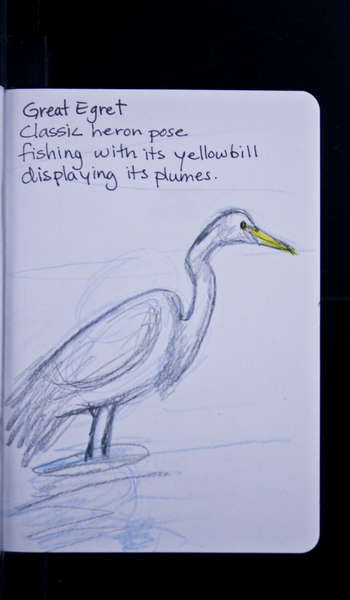 Great Egret
Classic heron pose
fishing with its yellow bill
displaying its plumes.